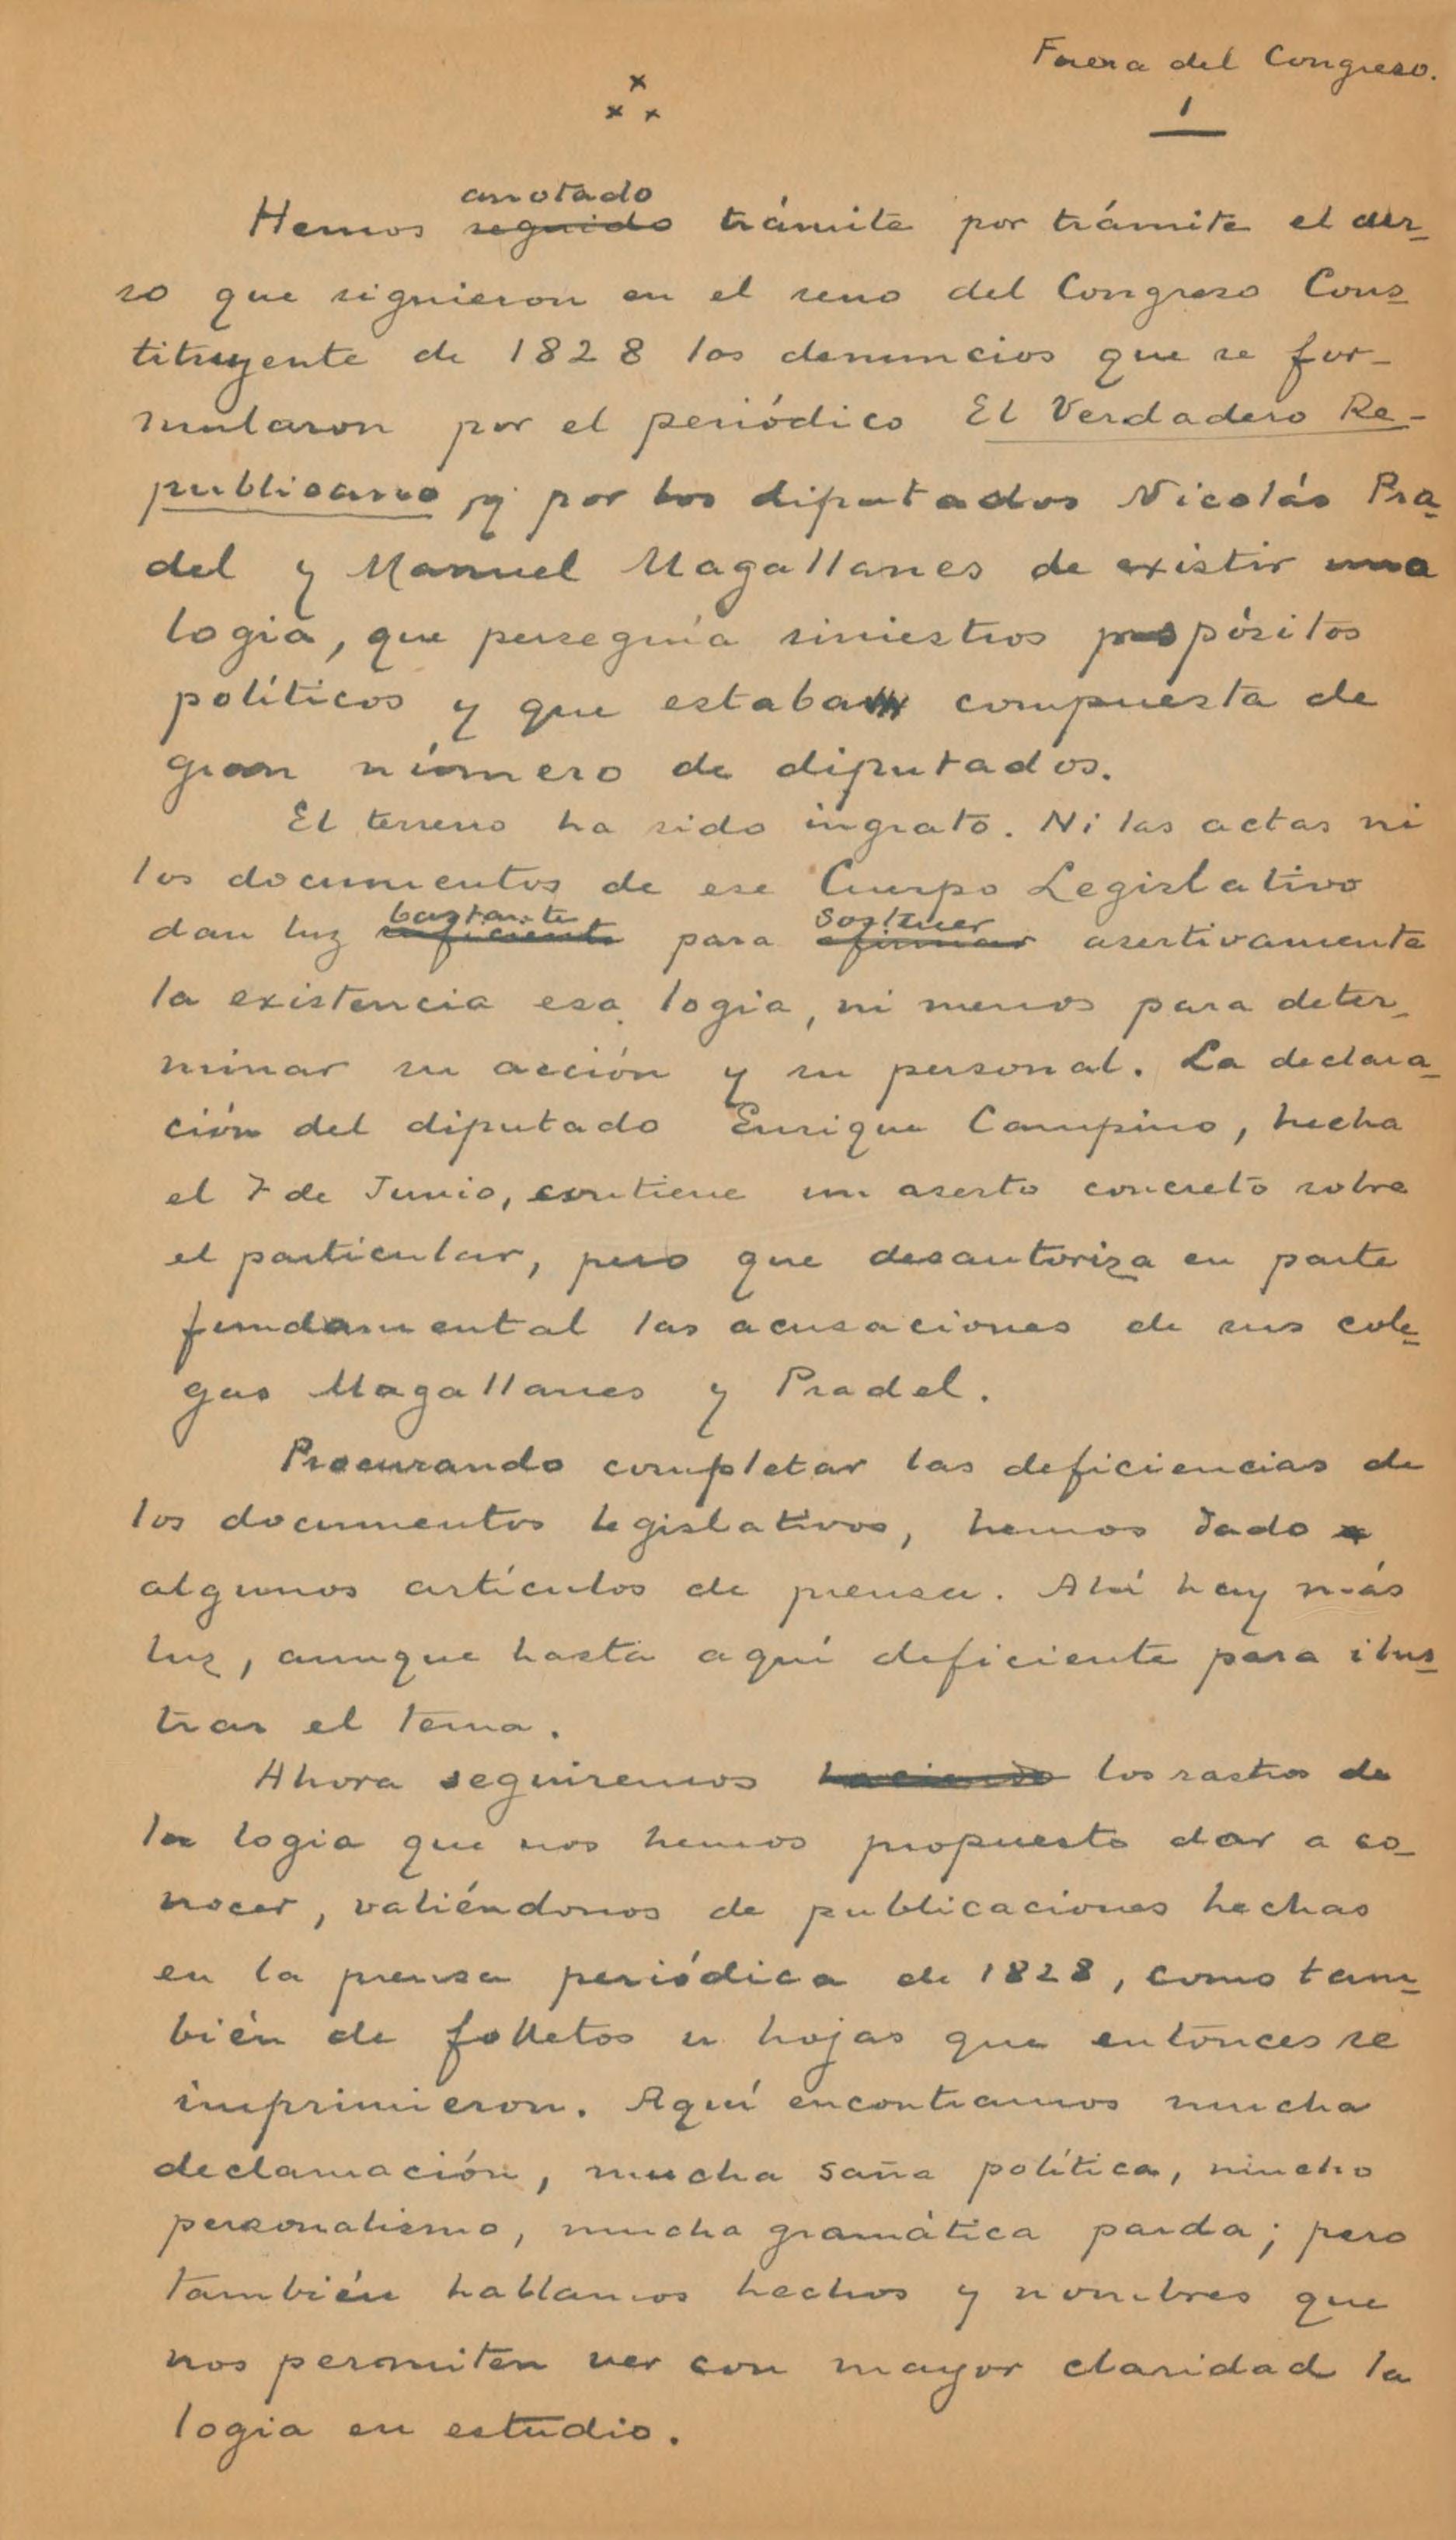 Fuera del Congreso.
x
x x
1
anotado
Hemos seguido trámite por trámite el cur-
so que siguieron en el seno del Congreso Cons-
tituyente de 1828 los denuncios que se for-
mularon por el periódico El Verdadero Re-
publicano y por los diputados Nicolás Pra-
del y Manuel Magallanes de existir una
logia, que perseguía siniestros propósitos
políticos y que estaba compuesta de
gran número de diputados.
El terreno ha sido ingrato. Ni las actas ni
los documentos de ese Cuerpo Legislativo
bastante sostener
dan luz suficiente para afirmar asertivamente
la existencia esa logia, ni menos para deter-
minar su acción y su personal. La declara-
ción del diputado Enrique Campino, hecha
el 7 de Junio, contiene un aserto concreto sobre
el particular, pero que desautoriza en parte
fundamental las acusaciones de sus cole-
gas Magallanes y Pradel.
Procurando completar las deficiencias de
los documentos legislativos, hemos dado
algunos artículos de prensa. Ahí hay más
luz, aunque hasta aquí deficiente para ilus-
trar el tema.
Ahora seguiremos haciendo los rastros de
la logia que nos hemos propuesto dar a co-
nocer, valiéndonos de publicaciones hechas
en la prensa periódica de 1828, como tam-
bién de folletos u hojas que entonces se
imprimieron. Aquí encontramos mucha
declamación, mucha saña política, mucho
personalismo, mucha gramática parda; pero
también hallamos hechos y nombres que
nos permiten ver con mayor claridad la
logia en estudio.